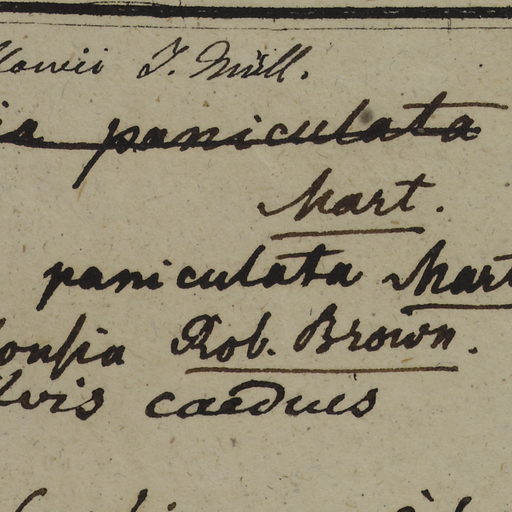 llowii J. Müll.
ia paniculata
Mart.
paniculata Mart
onsia Rob. Brown.
lvis caeduis